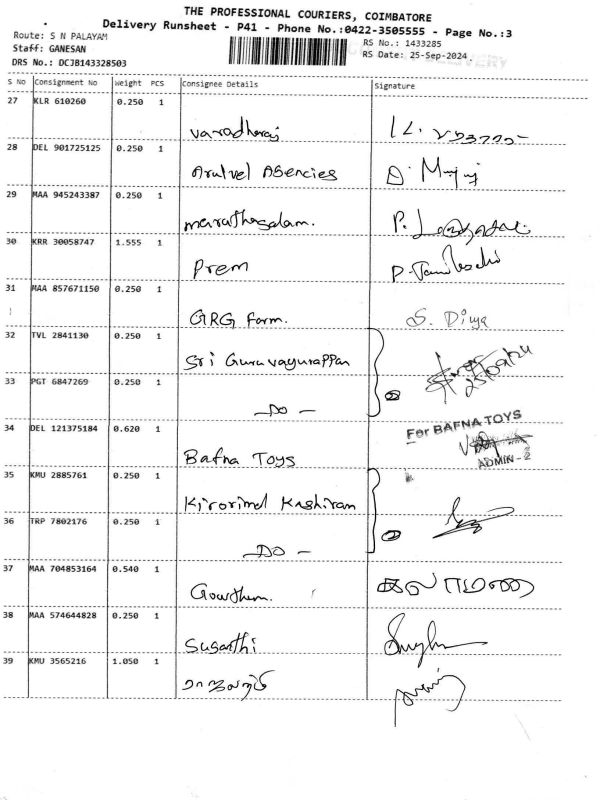 THE PROFESSIONAL COURIERS, COIMBATORE
Delivery Runsheet - P41 - Phone No.:0422-3505555 - Page No.:3
Route: S N PALAYAM
Staff: GANESAN
DRS No.: DCJB143328503
RS No.: 1433285
RS Date: 25-Sep-2024
S No Consignment No Weight PCS Consignee Details Signature
27 KLR 610260 0.250 1
Varadharaj
28 DEL 901725125 0.250 1
Arulvel Agencies
29 MAA 945243387 0.250 1
30 KRR 30058747 1.555 1
Prem
31 MAA 857671150 0.250 1
GRG Farm. S. Divya
32 TVL 2841130 0.250 1
Sri Guruvayurappan 25/09/24
33 PGT 6847269 0.250 1
— DO — 2
34 DEL 121375184 0.620 1
For BAFNA TOYS
Bafna Toys ADMIN - 2
35 KMU 2885761 0.250 1
Kirorimal Kashiram
36 TRP 7802176 0.250 1
— DO — 2
37 MAA 704853164 0.540 1
Gowtham.
38 MAA 574644828 0.250 1
Suganthi
39 KMU 3565216 1.050 1